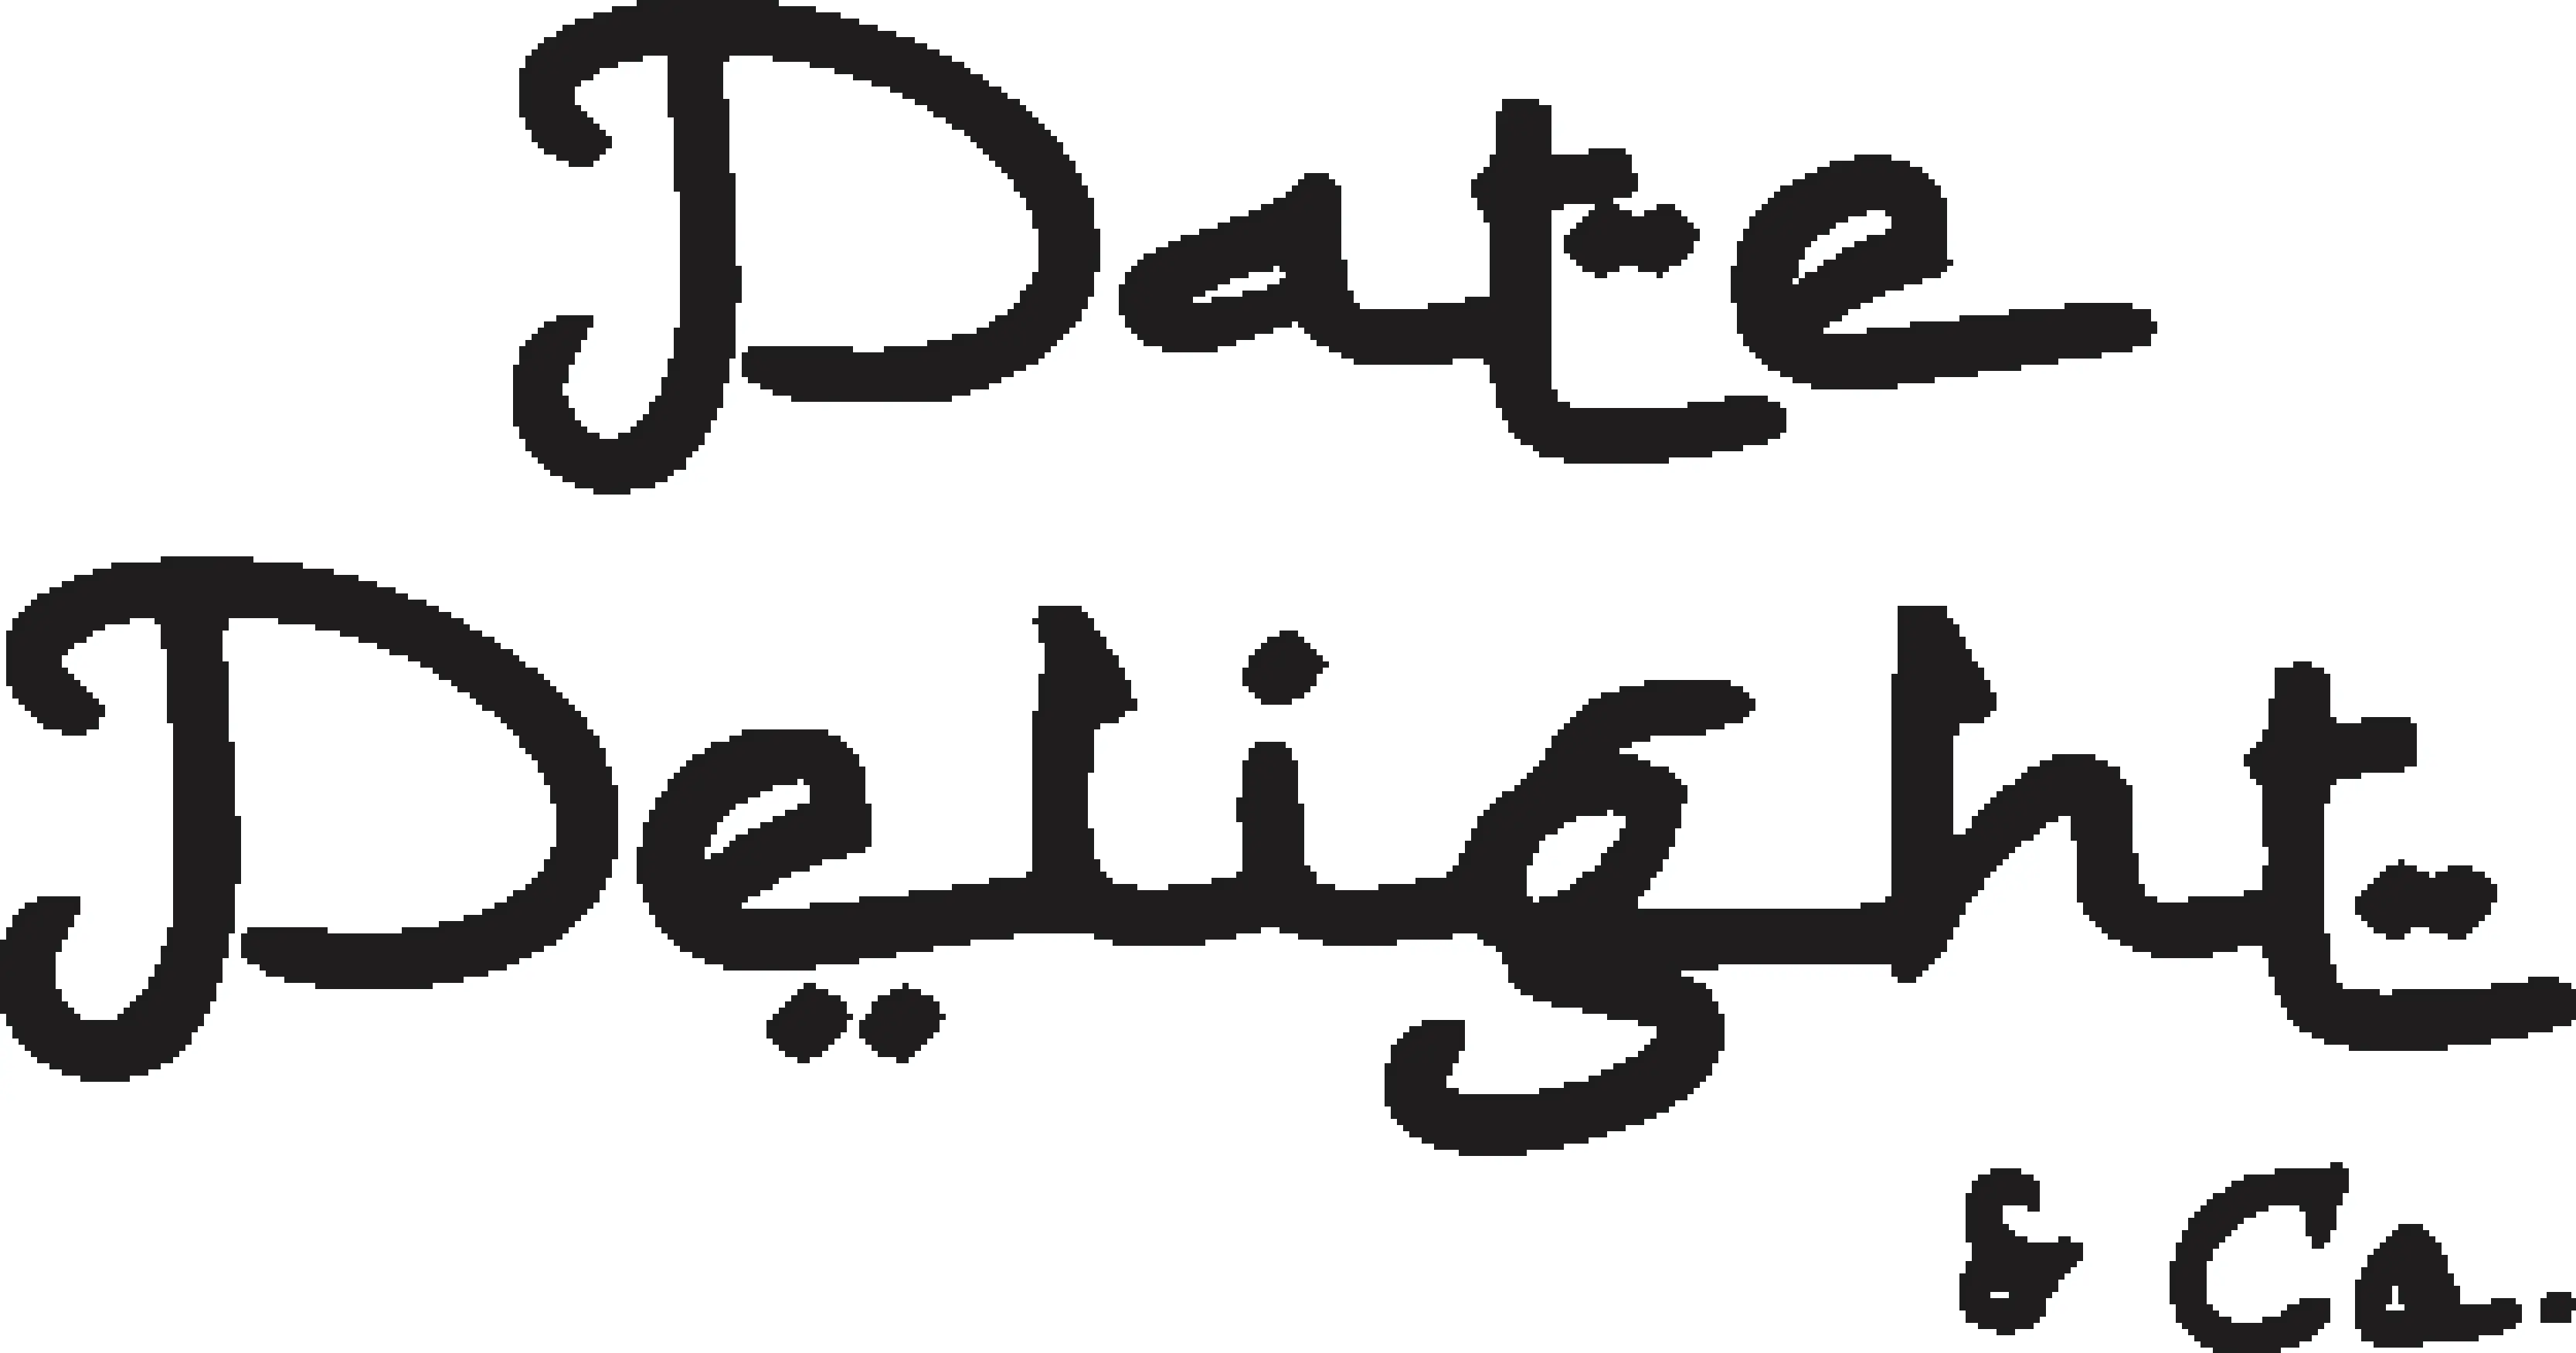 Date
Delight
& Co.